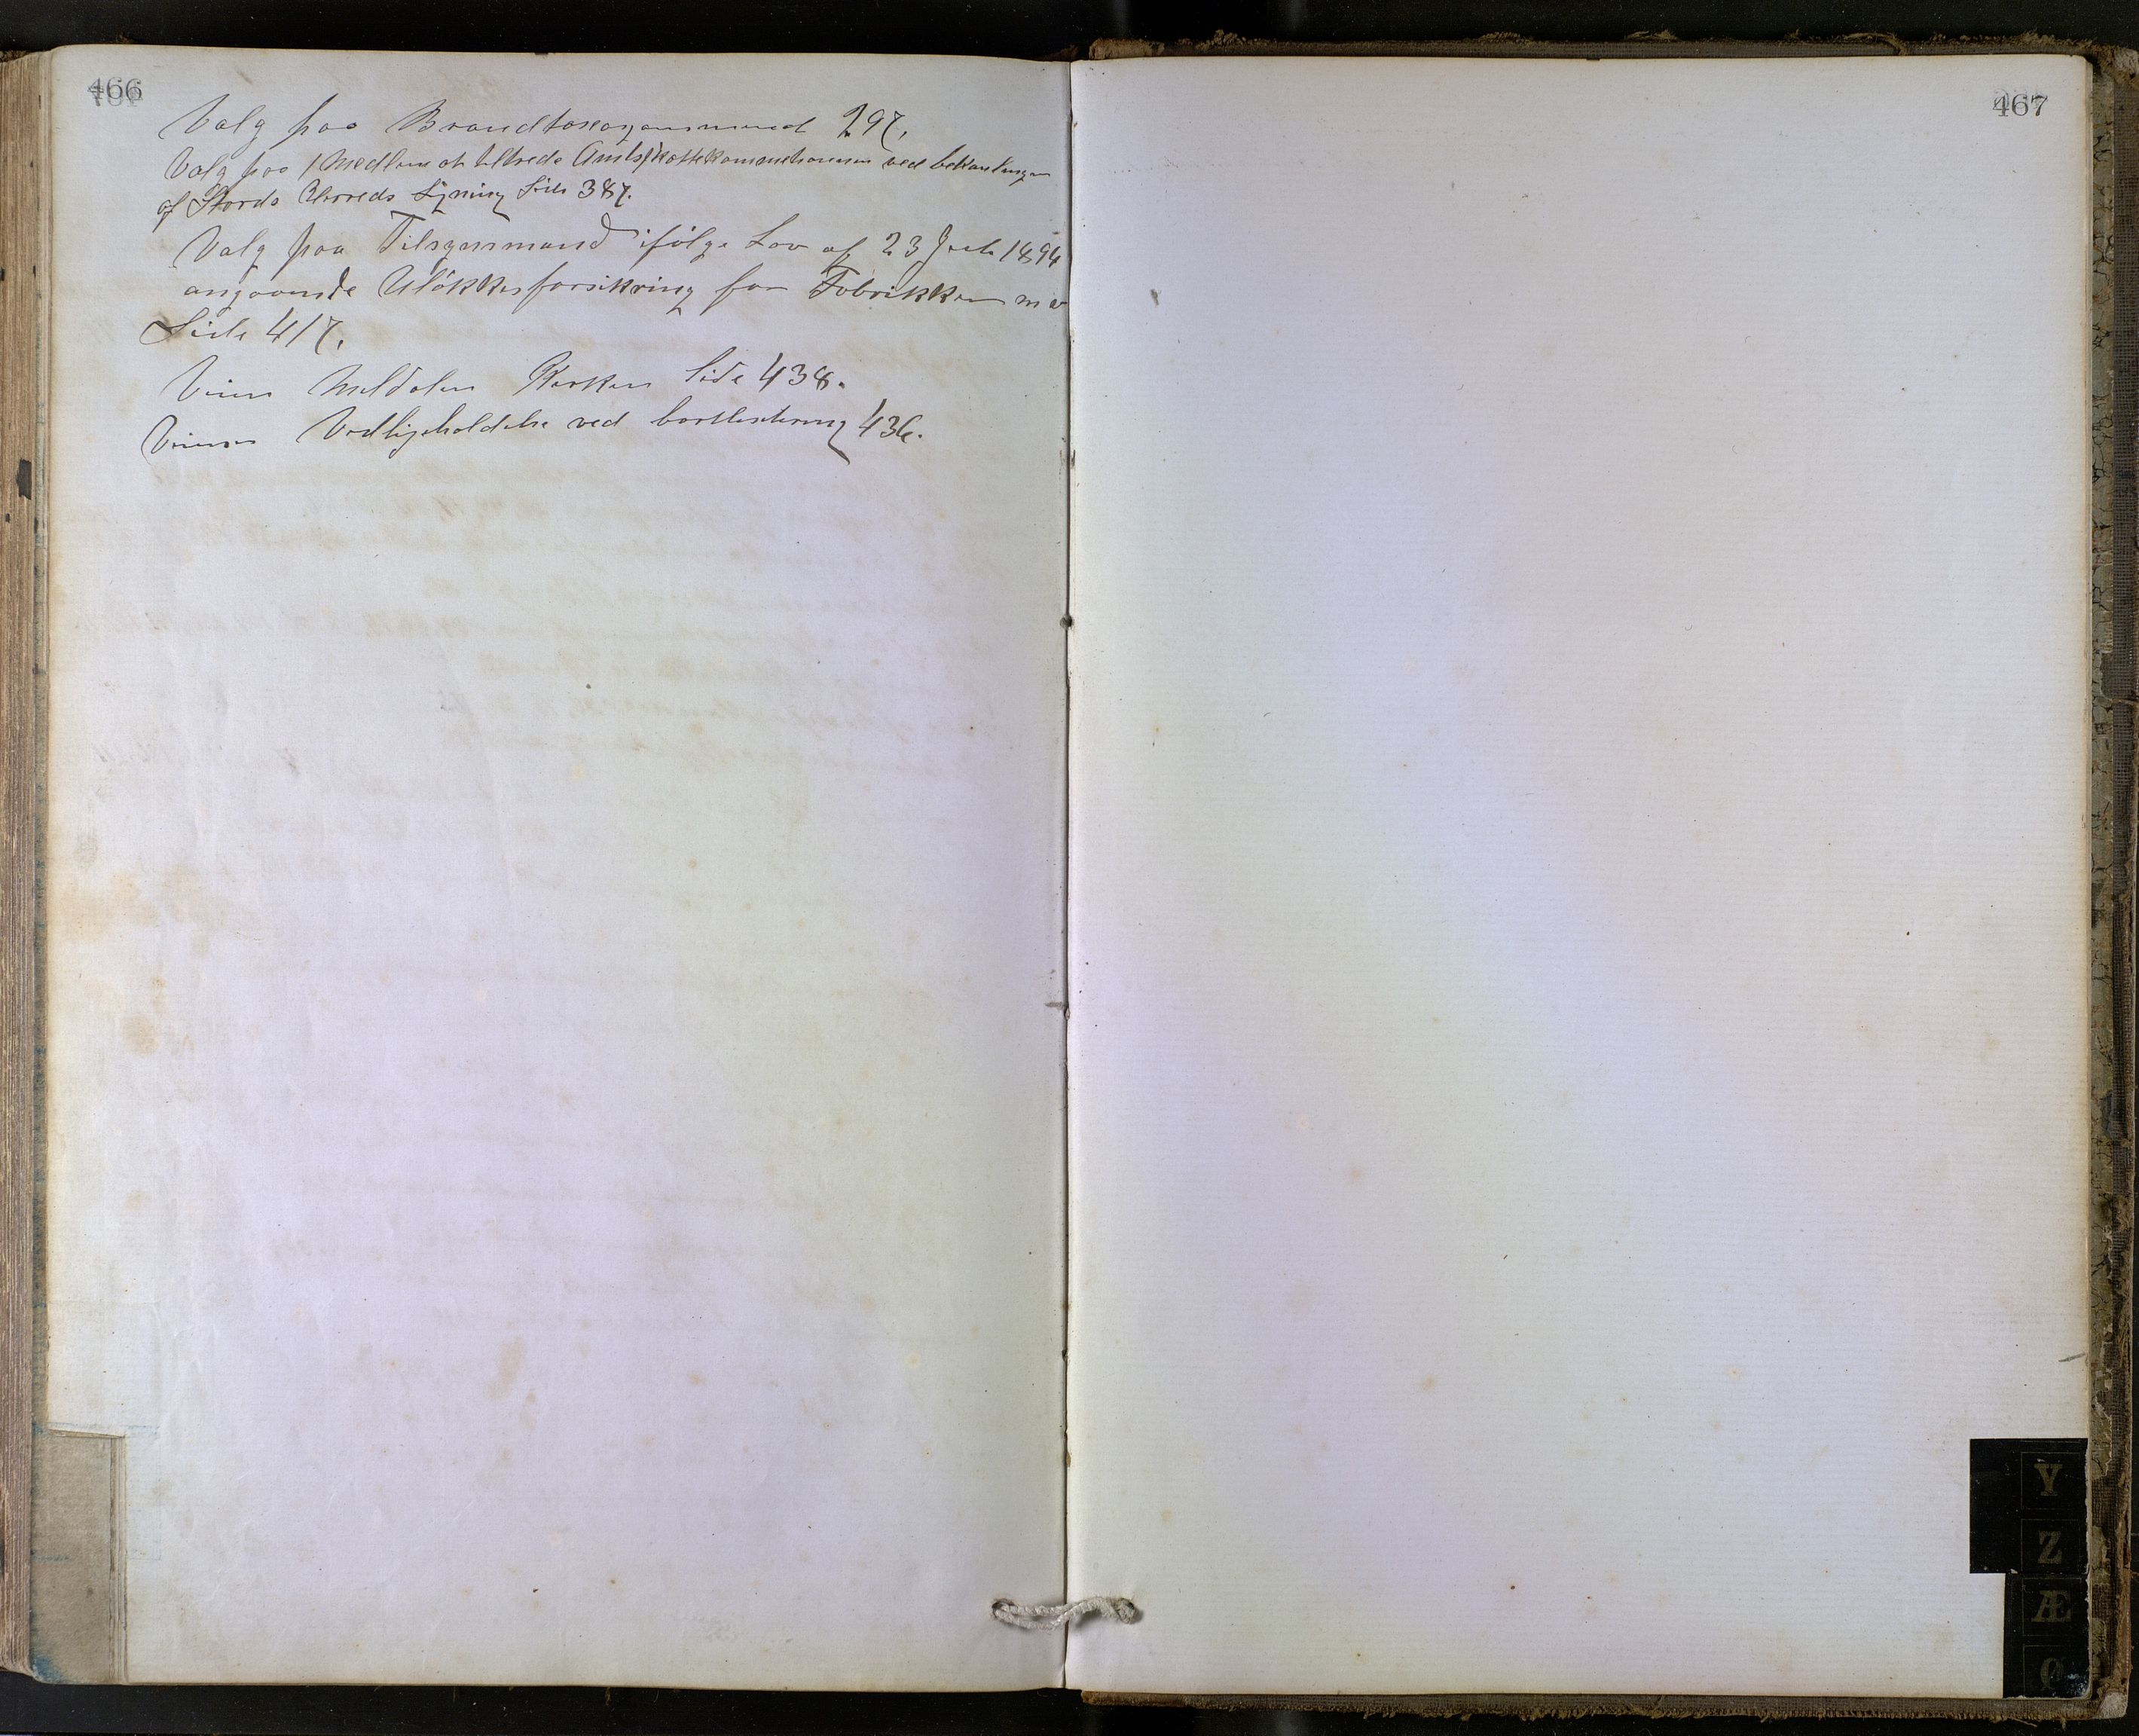 466
Valg paa Brandtaxasjonsmænd 297.
Valg paa 1 Medlem at tiltrede Amtsskattekommetionen ved behandlingen
af Stords Herreds Ligning Side 387.
Valg paa Tilsynsmænd ifølge Lov af 23 Juli 1894
angaaende Uløkkesforsikring for Fabrikker m v
Side 417.
Veien Meldalen Kirken Side 438.
Veienes Vedligeholdelse ved bortlicitering 436.
467
Y
Z
Æ